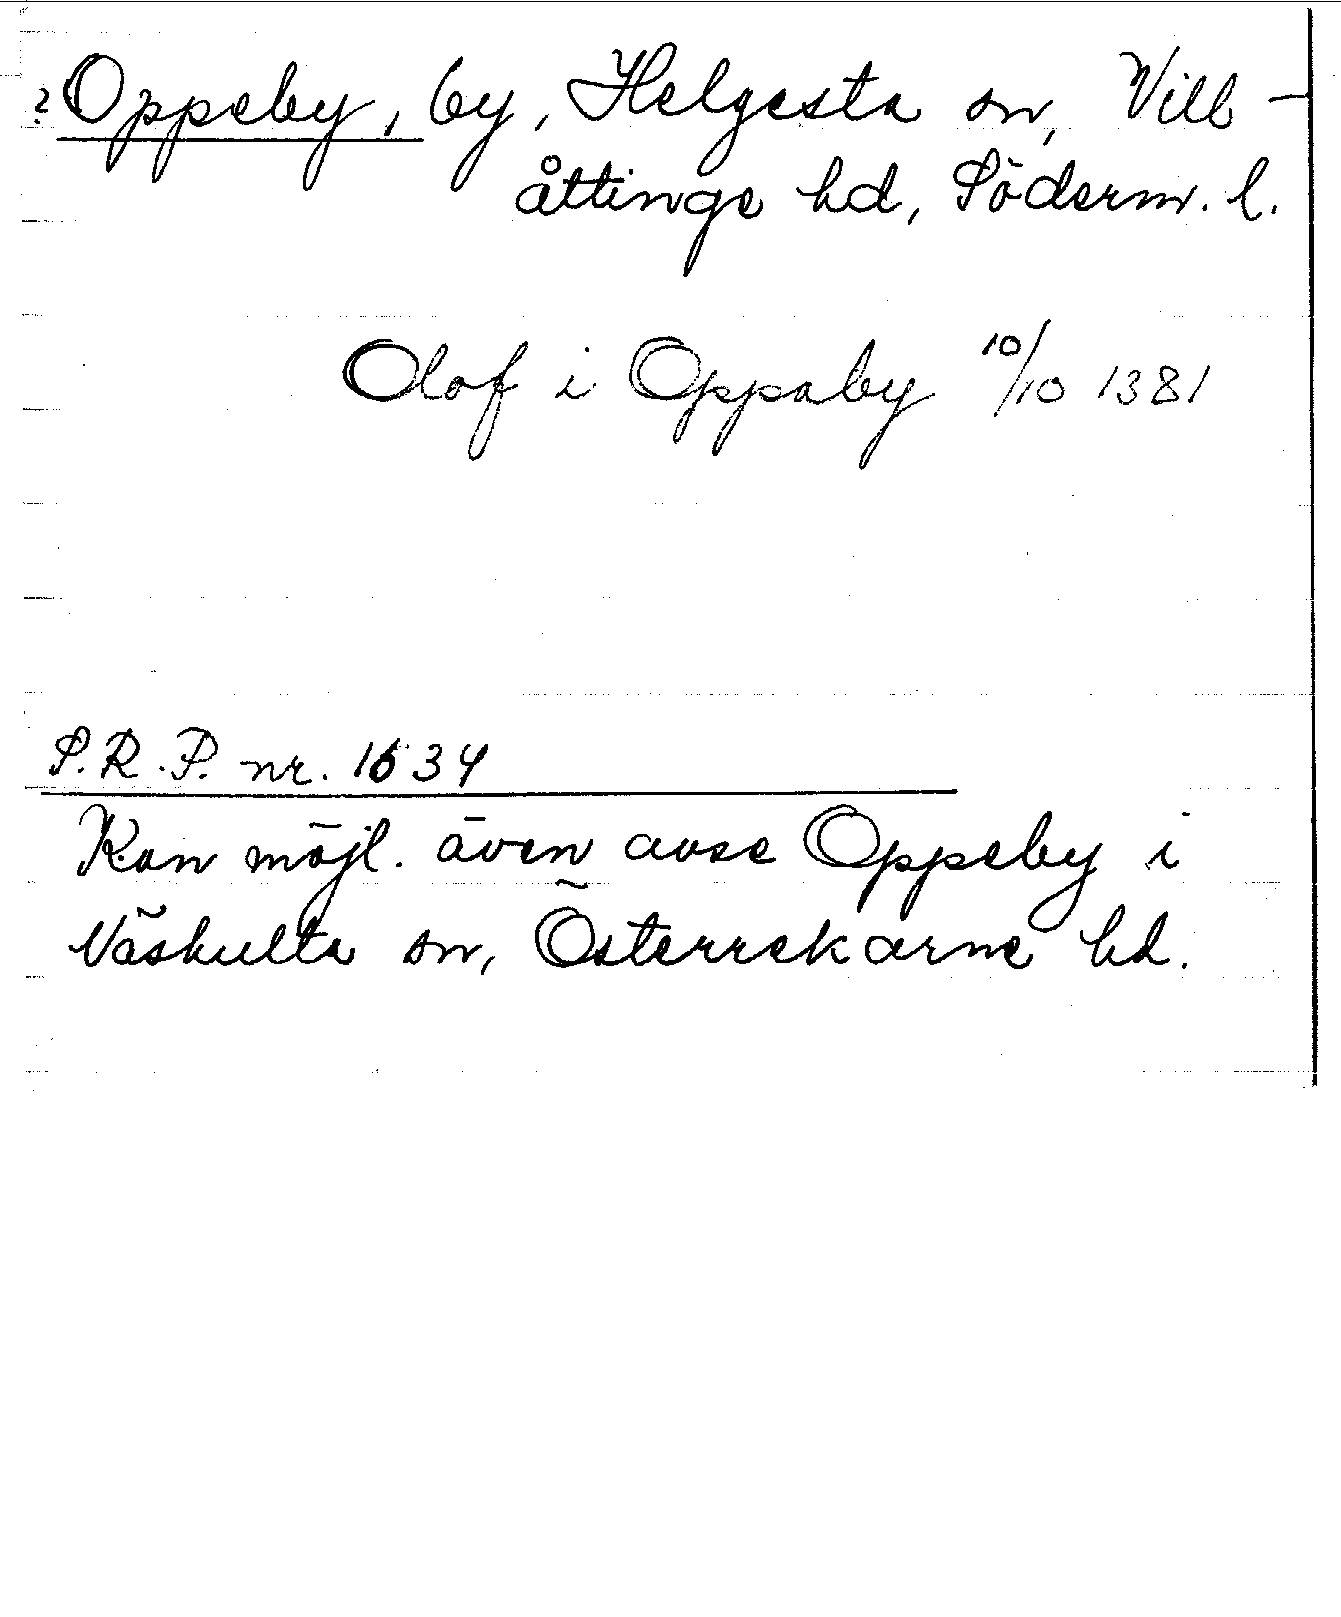 ? Oppeby, by, Helgesta sn, Vill-
åttinge hd, Söderm. l.
Olof i Oppaby 10/10 1381
S.R.P. nr. 1634
Kan möjl. även avse Oppeby i
Näshulta sn, Österrekarne hd.